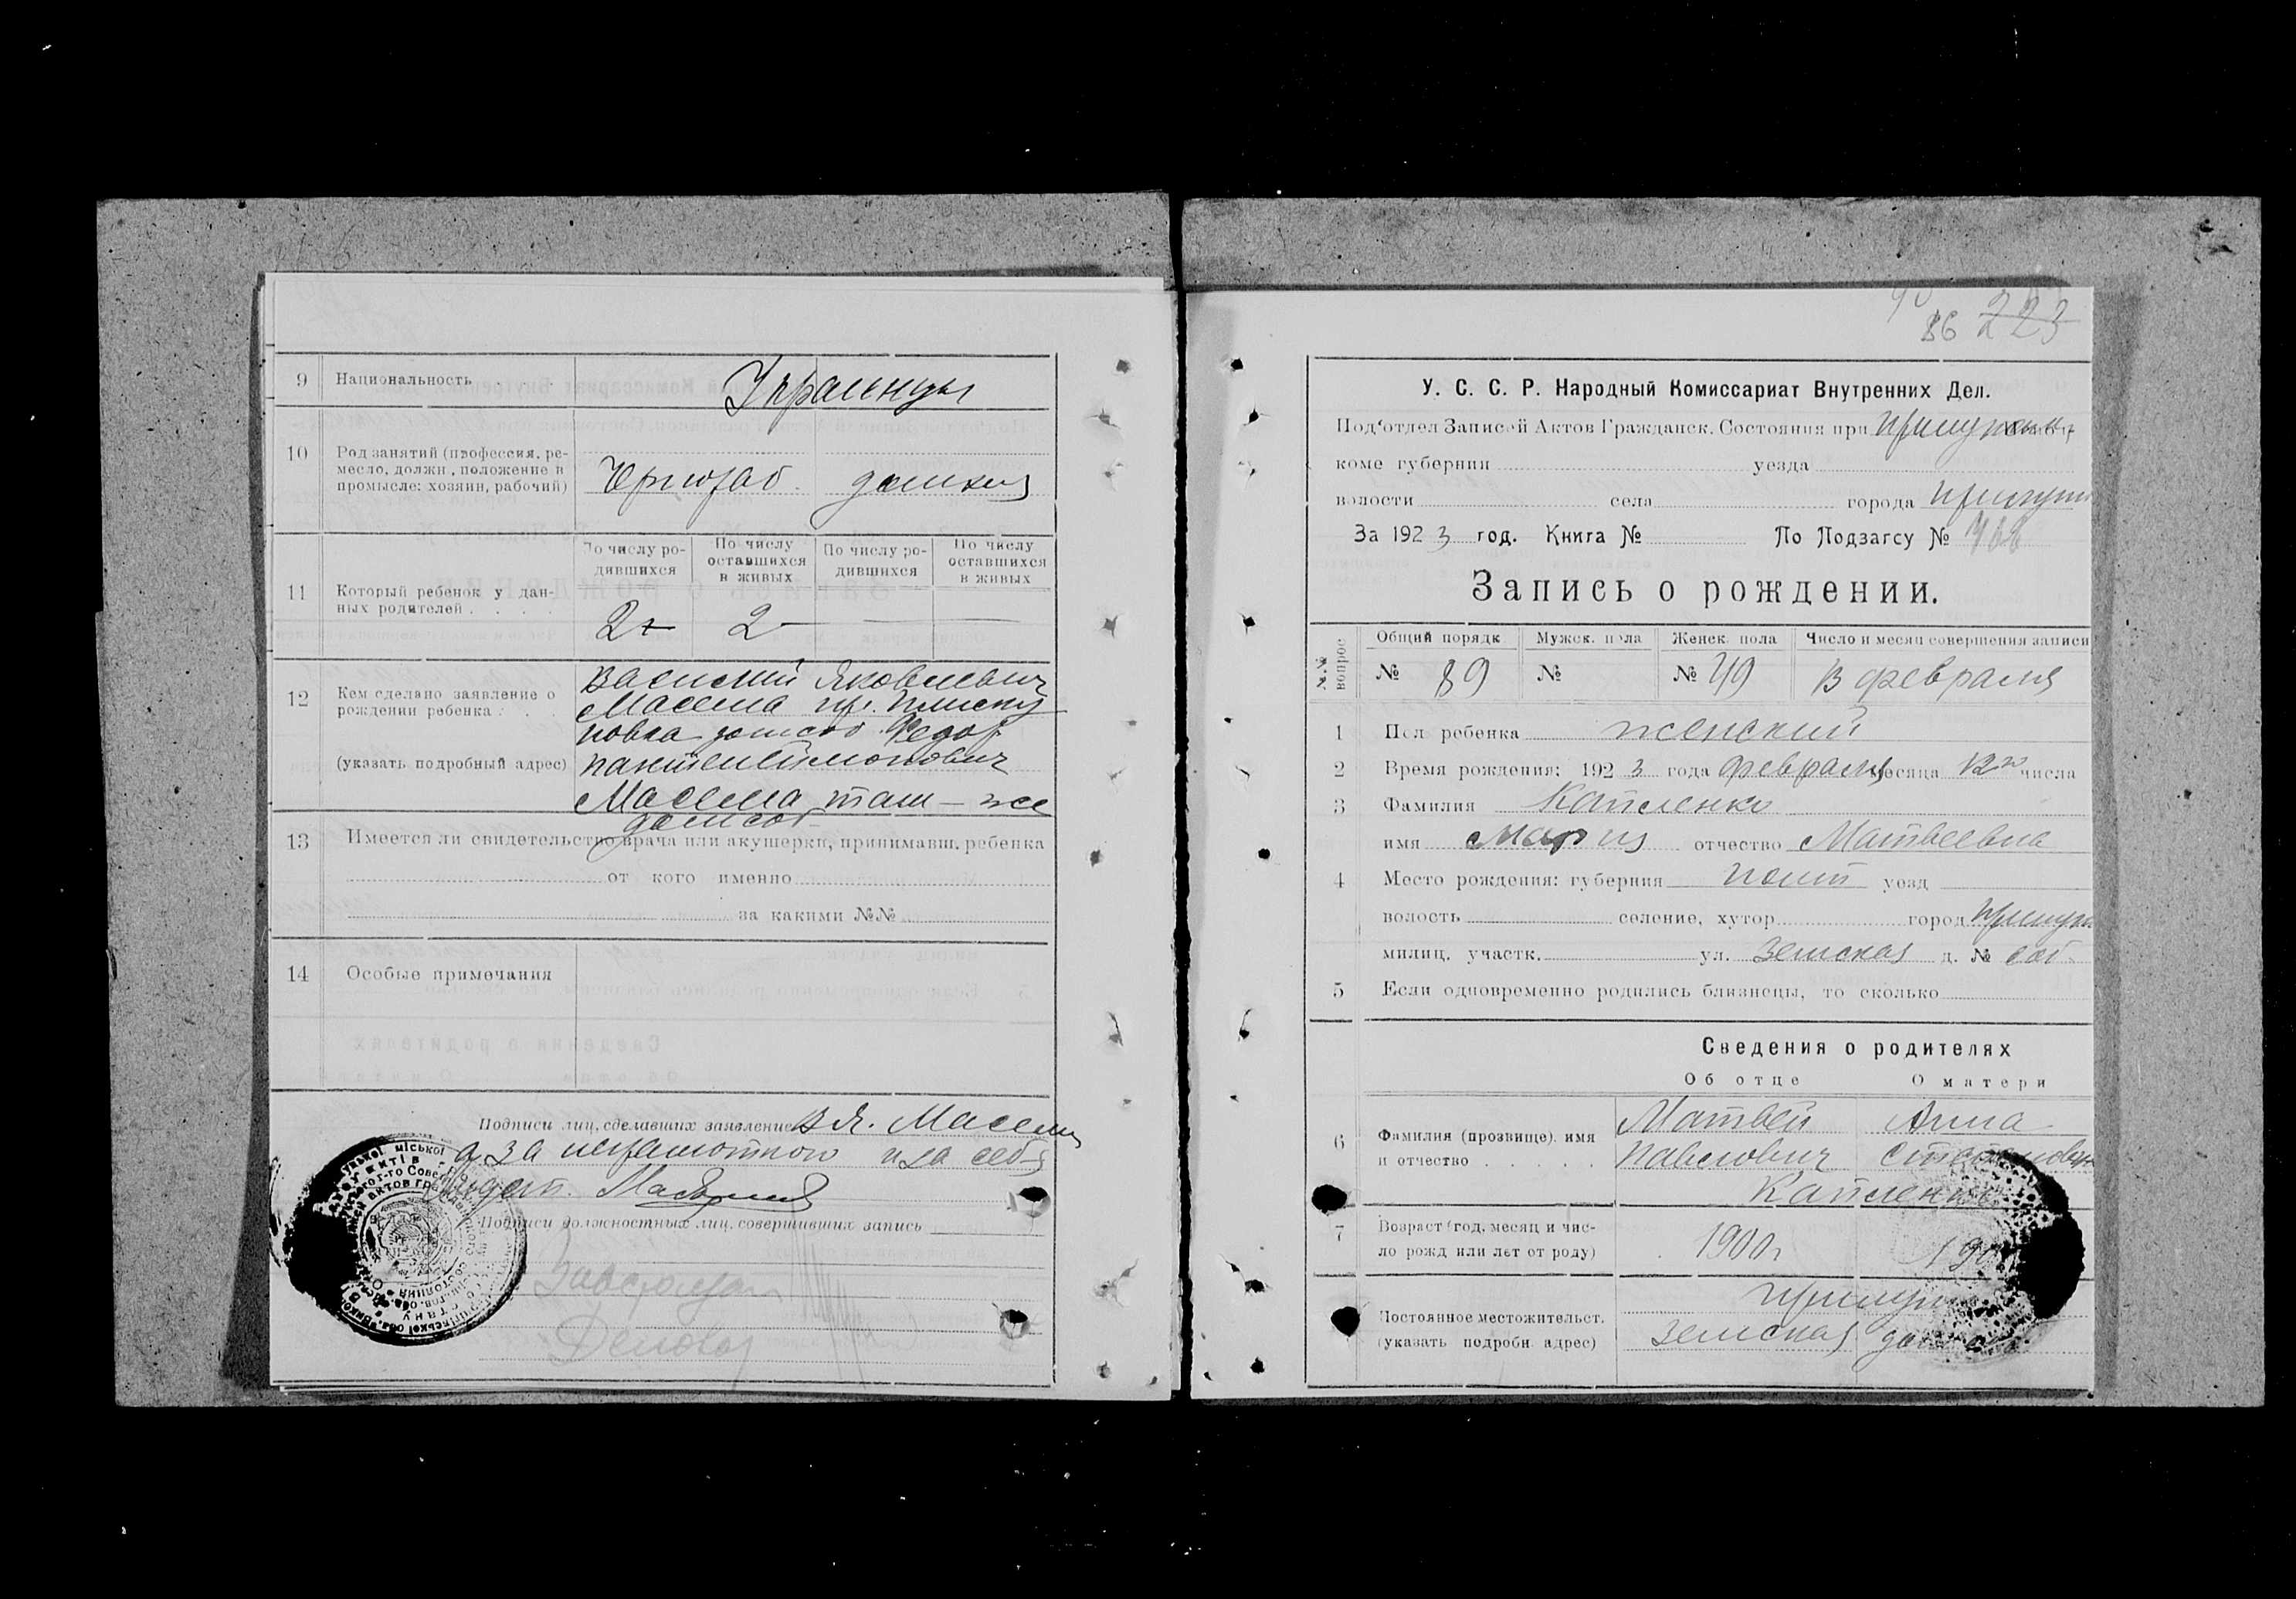 9 Национальность Украинцы
10 Род занятий (профессия, ре-
месло, должн., положение в
промысле: хозяин, рабочий)
домхоз
11 Который ребенок у дан-
ных родителей
По числу ро-
дившихся
По числу
оставшихся
в живых
По числу ро-
дившихся
По числу
оставшихся
в живых
2 2
12 Кем сделано заявление о
рождении ребенка
(указать подробный адрес)
Василий Яковлевич
Масела пр. Плиску
новка домсоб Федор
Пантелеймонович
Масела там-же
домсоб
13 Имеется ли свидетельство врача или акушерки, принимавш. ребенка
от кого именно
за какими №№
14 Особые примечания
Подписи лиц, сделавших заявление В. Я. Масела
а за неграмотного и за себя
Подписи должностных лиц, совершивших запись
86 223
У. С. С. Р. Народный Комиссариат Внутренних Дел.
Под'отдел Записей Актов Гражданск. Состояния при
коме губернии уезда
волости села города Прилуки
За 1923 год. Книга № По Подзагсу №
Запись о рождении.
№№ вопрос
Общий порядк Мужск. пола Женск. пола Число и месяц совершения записи
№ 89 № № 49 13 февраля
1 Пол ребенка женский
2 Время рождения: 1923 года февраля месяца 12го числа
3 Фамилия Капленко
имя Мария отчество Матвеевна
4 Место рождения: губерния Полт уезд
волость селение, хутор город Прилуки
милиц. участк. ул. Земская д. № соб.
5 Если одновременно родились близнецы, то сколько
Сведения о родителях
Об отце О матери
6 Фамилия (прозвище), имя
и отчество
Матвей
Павлович
Анна
Степановна
Капленко
7 Возраст (год, месяц и чис-
ло рожд или лет от роду)
1900г
Постоянное местожительст.
(указать подробн. адрес)
Прилуки
Земская дом